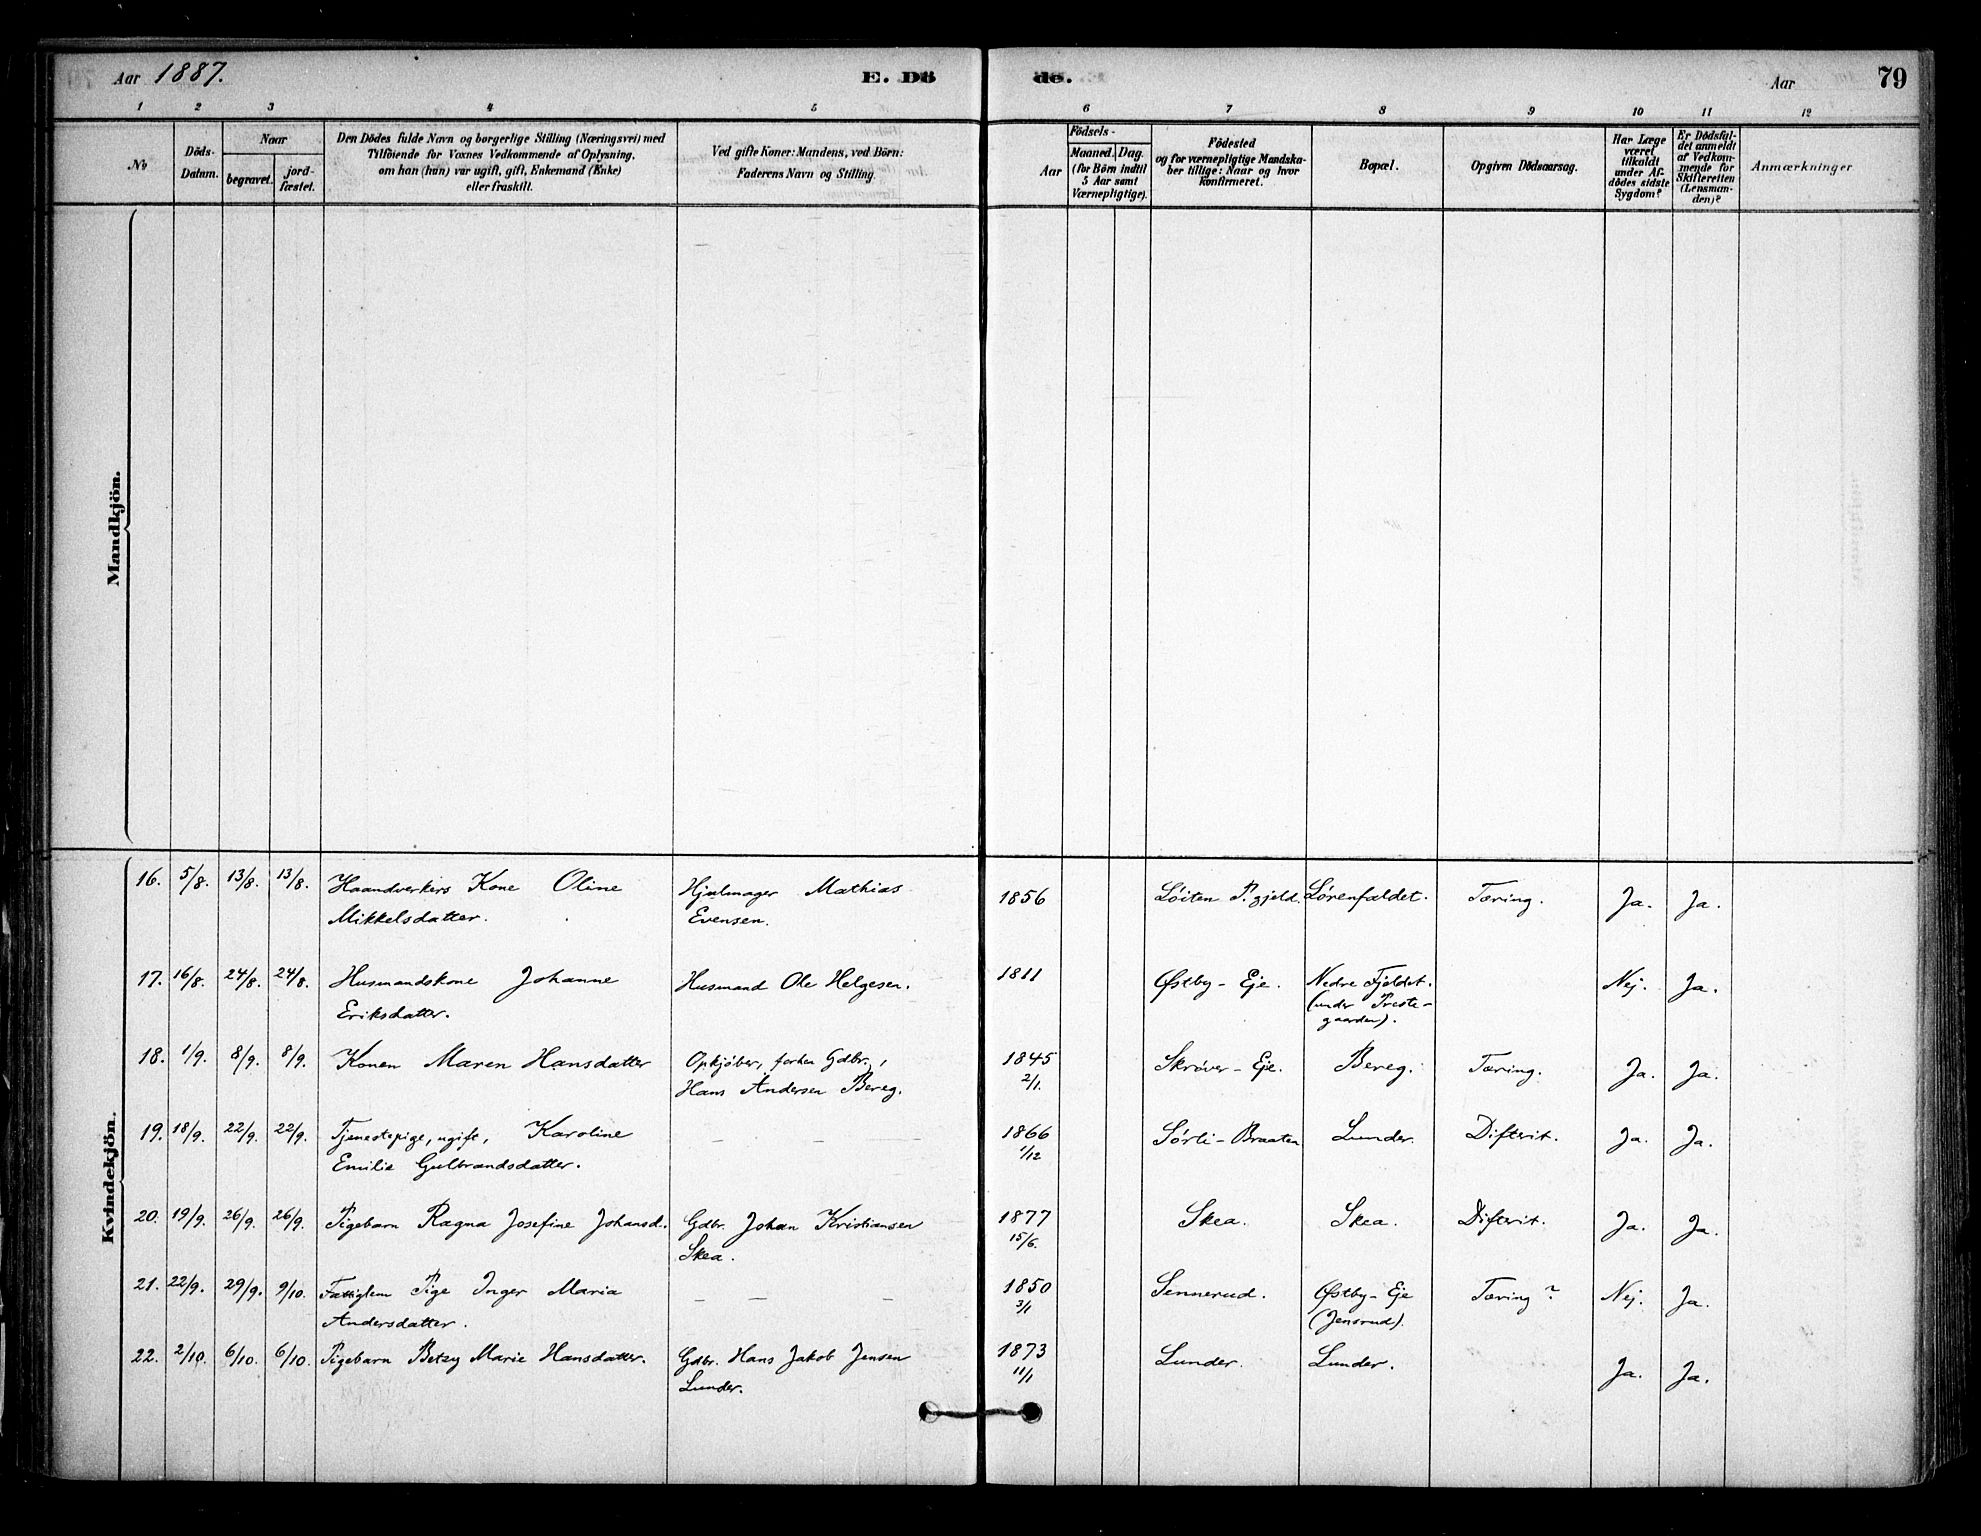 Aar 1887.
E. Dö de.
Aar
79
1 2 3 4 5 6 7 8 9 10 11 12
No
Döds-
Datum.
Naar
begravet.
jord-
fæstet.
Den Dödes fulde Navn og borgerlige Stilling (Næringsvei) med
Tilföiende for Voxnes Vedkommende af Oplysning,
om han (hun) var ugift, gift, Enkemand (Enke)
eller fraskilt.
Ved gifte Koner: Mandens, ved Börn:
Faderens Navn og Stilling.
Födsels-
Aar
Maaned. Dag.
(for Börn indtil
5 Aar samt
Værnepligtige).
Födested
og for værnepligtige Mandska-
ber tillige: Naar og hvor
Konfirmeret.
Bopæl.
Opgiven Dödsaarsag.
Har Læge
været
tilkaldt
under Af-
dödes sidste
Sygdom?
Er Dödsfal-
det anmeldt
af Vedkom-
mende for
Skifteretten
(Lensman-
den)?
Anmærkninger
Mandkjön.
Kvindekjön.
16. 5/8. 13/8. 13/8. Haandverkers Kone Oline Hjulmager Mathias 1856 Löiten P. gjeld. Sörenfaldet. Tæring. Ja. Ja.
Mikkelsdatter. Evensen.
17. 16/8. 24/8. 24/8. Husmandskone Johanne Husmand Ole Helgesen. 1811 Østby-Eje. Nedre Fjeldet. Nej. Ja.
Eriksdatter. (under Preste-
gaarden).
18. 1/9. 8/9. 8/9. Konen Maren Hansdatter Opkjøber, forhen Gdbr., 1845 Skrøver-Eje. Bereg. Tæring. Ja. Ja.
Hans Andersen Bereg. 2/1.
19. 18/9. 22/9. 22/9. Tjenestepige, ugift, Karoline — — — 1866 Sörli-Braaten Lunder. Difterit. Ja. Ja.
Emilie Gulbrandsdatter. 1/12
20. 19/9. 26/9. 26/9. Pigebarn Ragna Josefine Johansd. Gdbr. Johan Kristiansen 1877 Skea. Skea. Difterit. Ja. Ja.
Skea. 15/6.
21. 22/9. 29/9. 9/10. Fattiglem Pige Inger Maria — — — 1850 Sennerud. Østby-Eje Tæring? Nej. Ja.
Andersdatter. 3/1 (Jensrud).
22. 2/10. 6/10. 6/10. Pigebarn Betzy Marie Hansdatter. Gdbr. Hans Jakob Jensen 1873 Lunder. Lunder. Ja. Ja.
Lunder. 11/1